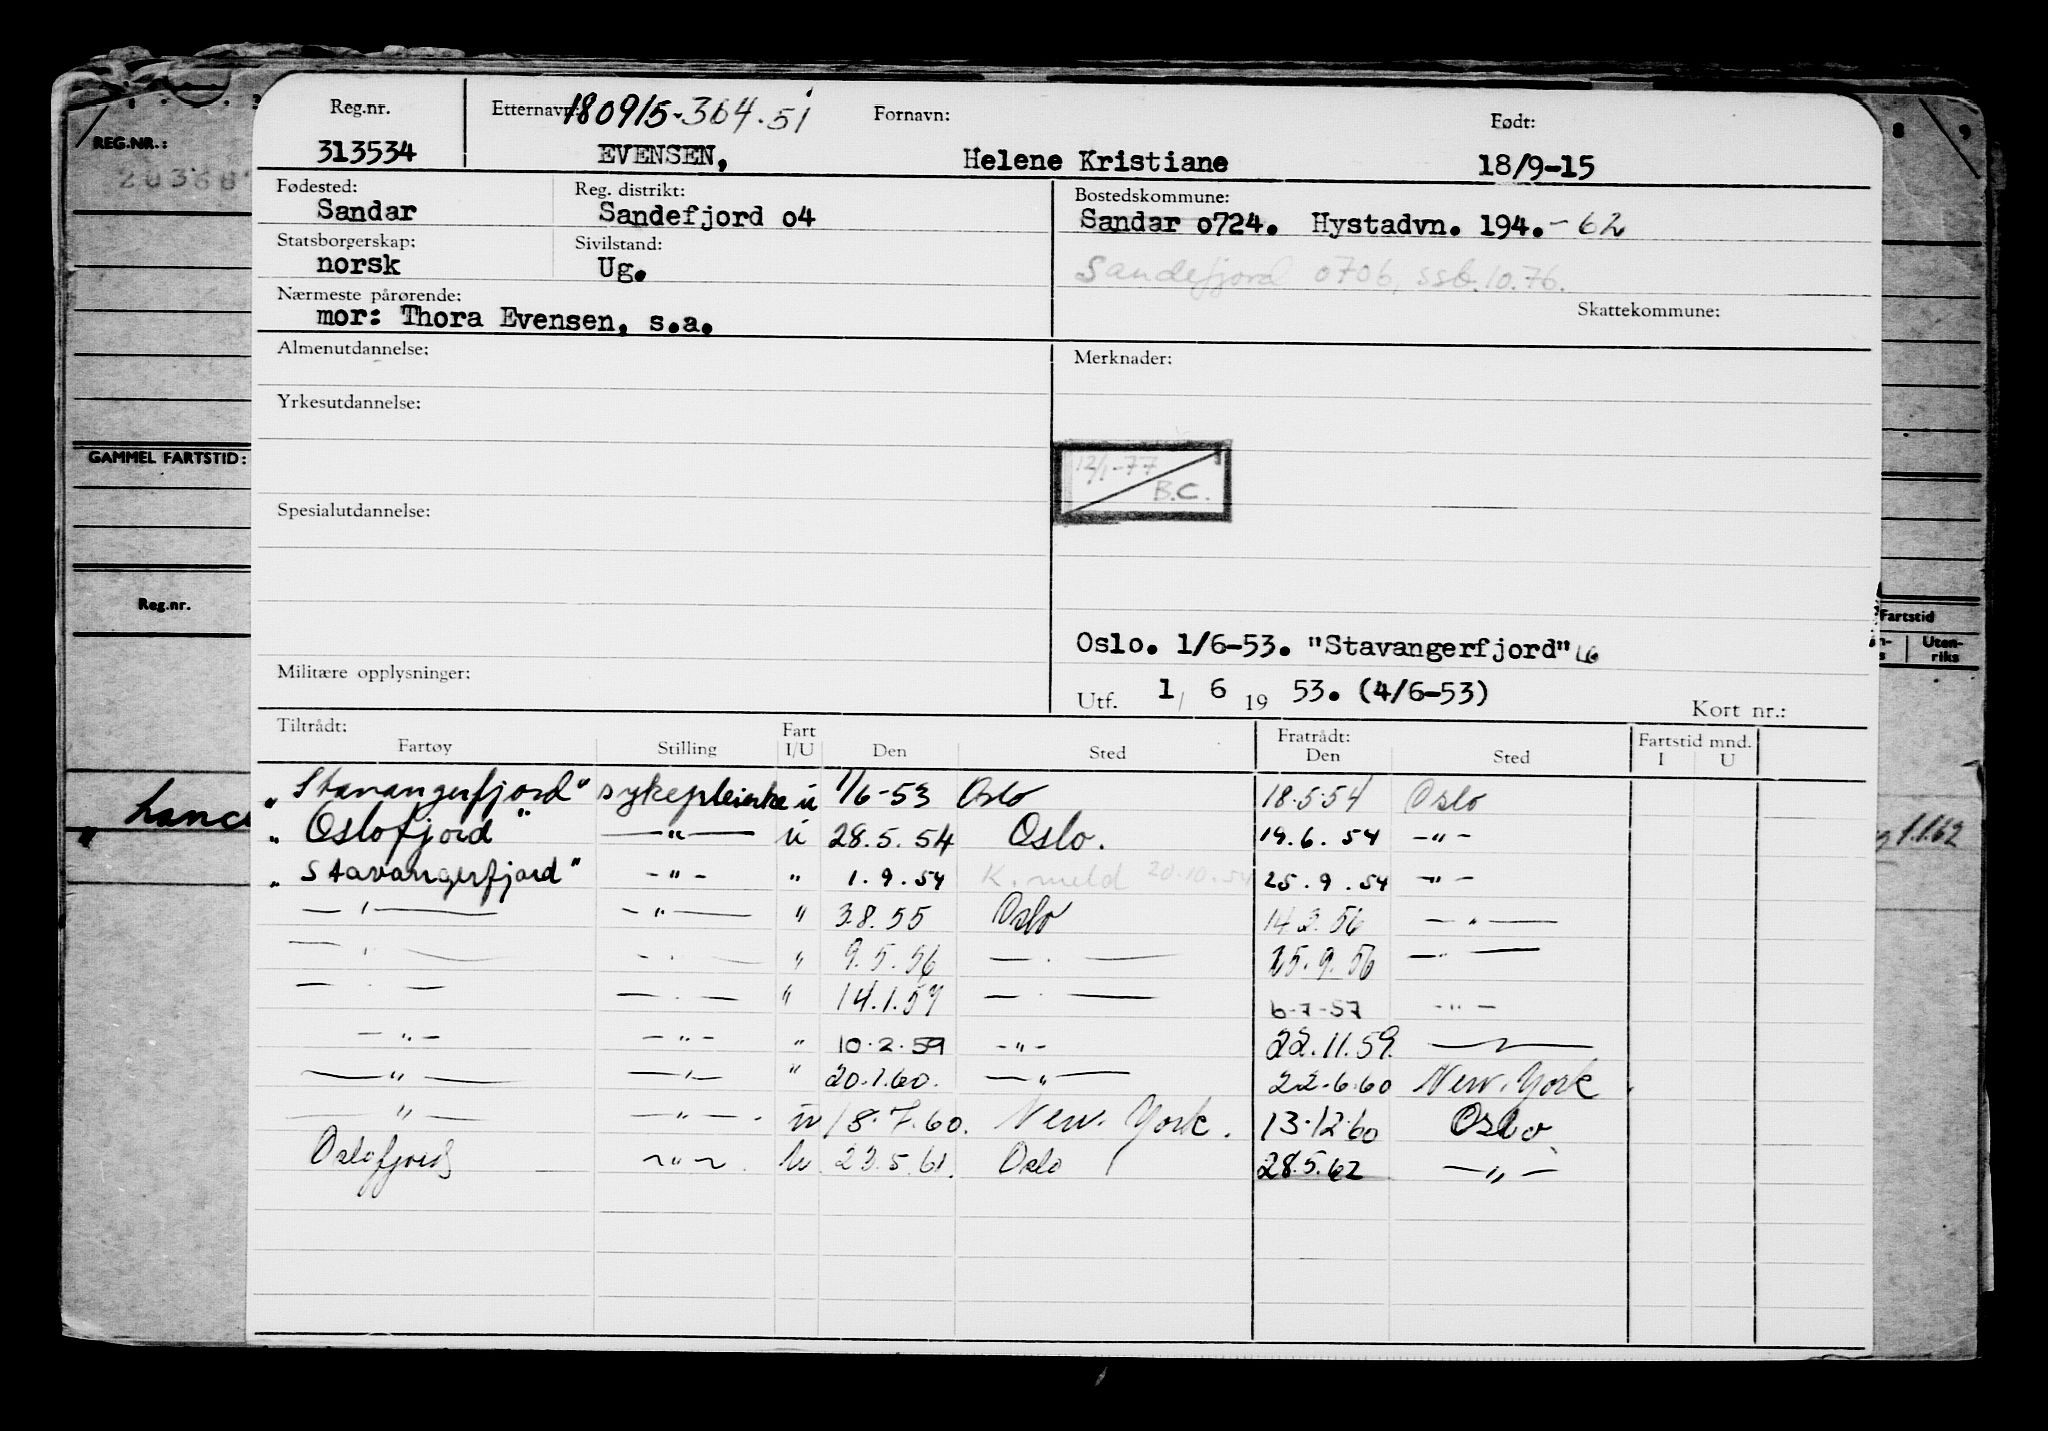 Reg.nr. Etternavn: 180915-364.51 Fornavn: Født:
313534 EVENSEN, Helene Kristiane 18/9-15
Fødested: Reg. distrikt: Bostedskommune:
Sandar Sandefjord o4 Sandar o724. Hystadvn. 194.-62
Statsborgerskap: Sivilstand:
norsk Ug. Sandefjord 0706, ssb.10.76.
Nærmeste pårørende: Skattekommune:
mor: Thora Evensen, s.a.
Almenutdannelse: Merknader:
Yrkesutdannelse:
12/1-77
B.C.
Spesialutdannelse:
Oslo. 1/6-53. "Stavangerfjord"
Militære opplysninger:
Utf. 1/ 6 19 53. (4/6-53) Kort nr.:
Tiltrådt: Fart Fratrådt: Fartstid mnd.
Fartøy Stilling I/U Den Sted Den Sted I U
"Stavangerfjord" sykepleierske u 1/6-53 Oslo 18.5.54 Oslo
"Oslofjord" —"— u 28.5.54 Oslo. 19.6.54 -"-
"Stavangerfjord" -"- " 1.9.54 K.meld 20.10.54 25.9.54 -"-
—"— —"— " 3.8.55 Oslo 14.3.56 —"—
—"— —"— " 9.5.56 —"— 25.9.56 —"—
—"— —"— " 14.1.57 —"— 6-7-57 -"-
-"- -"- " 10.2.59 -"- 22.11.59. —"—
—"— —"— " 20.1.60. —"— 22.6.60 New. York
—"— —"— u 18.7.60. New. York. 13.12.60 Oslo
Oslofjord —"— u 23.5.61. Oslo 28.5.62 —"—
REG.NR.:
GAMMEL FARTSTID:
Reg.nr.
8 9
Fartstid
Uten-
riks
1.1.62